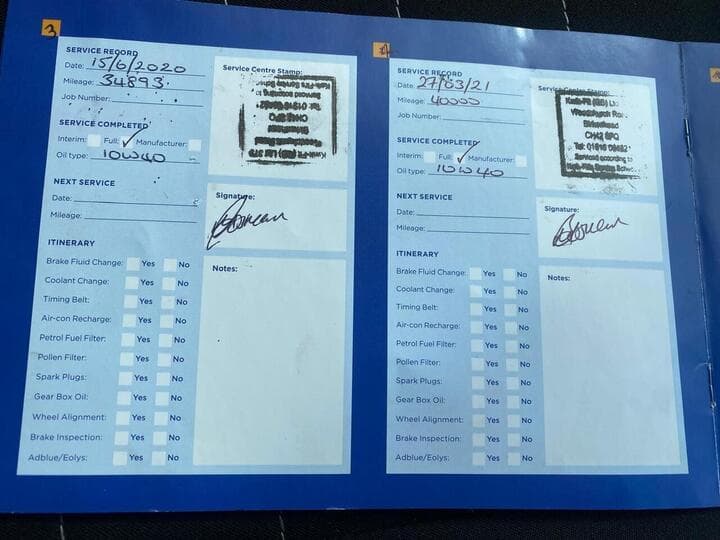 3
SERVICE RECORD
Date: 15/6/2020
Mileage: 34893
Job Number:
Service Centre Stamp:
Kwik-Fit (GB) Ltd
Birkenhead
CH42 6PQ
Serviced according to
SERVICE COMPLETED
Interim: Full: ✓ Manufacturer:
Oil type: 10W40
NEXT SERVICE
Date:
Mileage:
Signature:
ITINERARY
Notes:
Brake Fluid Change: Yes No
Coolant Change: Yes No
Timing Belt: Yes No
Air-con Recharge: Yes No
Petrol Fuel Filter: Yes No
Pollen Filter: Yes No
Spark Plugs: Yes No
Gear Box Oil: Yes No
Wheel Alignment: Yes No
Brake Inspection: Yes No
Adblue/Eolys: Yes No
4
SERVICE RECORD
Date: 27/03/21
Mileage: 40000
Job Number:
Service Centre Stamp:
Kwik-Fit (GB) Ltd
Birkenhead
CH42 6PQ
Serviced according to
SERVICE COMPLETED
Interim: Full: ✓ Manufacturer:
Oil type: 10W40
NEXT SERVICE
Date:
Mileage:
Signature:
ITINERARY
Notes:
Brake Fluid Change: Yes No
Coolant Change: Yes No
Timing Belt: Yes No
Air-con Recharge: Yes No
Petrol Fuel Filter: Yes No
Pollen Filter: Yes No
Spark Plugs: Yes No
Gear Box Oil: Yes No
Wheel Alignment: Yes No
Brake Inspection: Yes No
Adblue/Eolys: Yes No